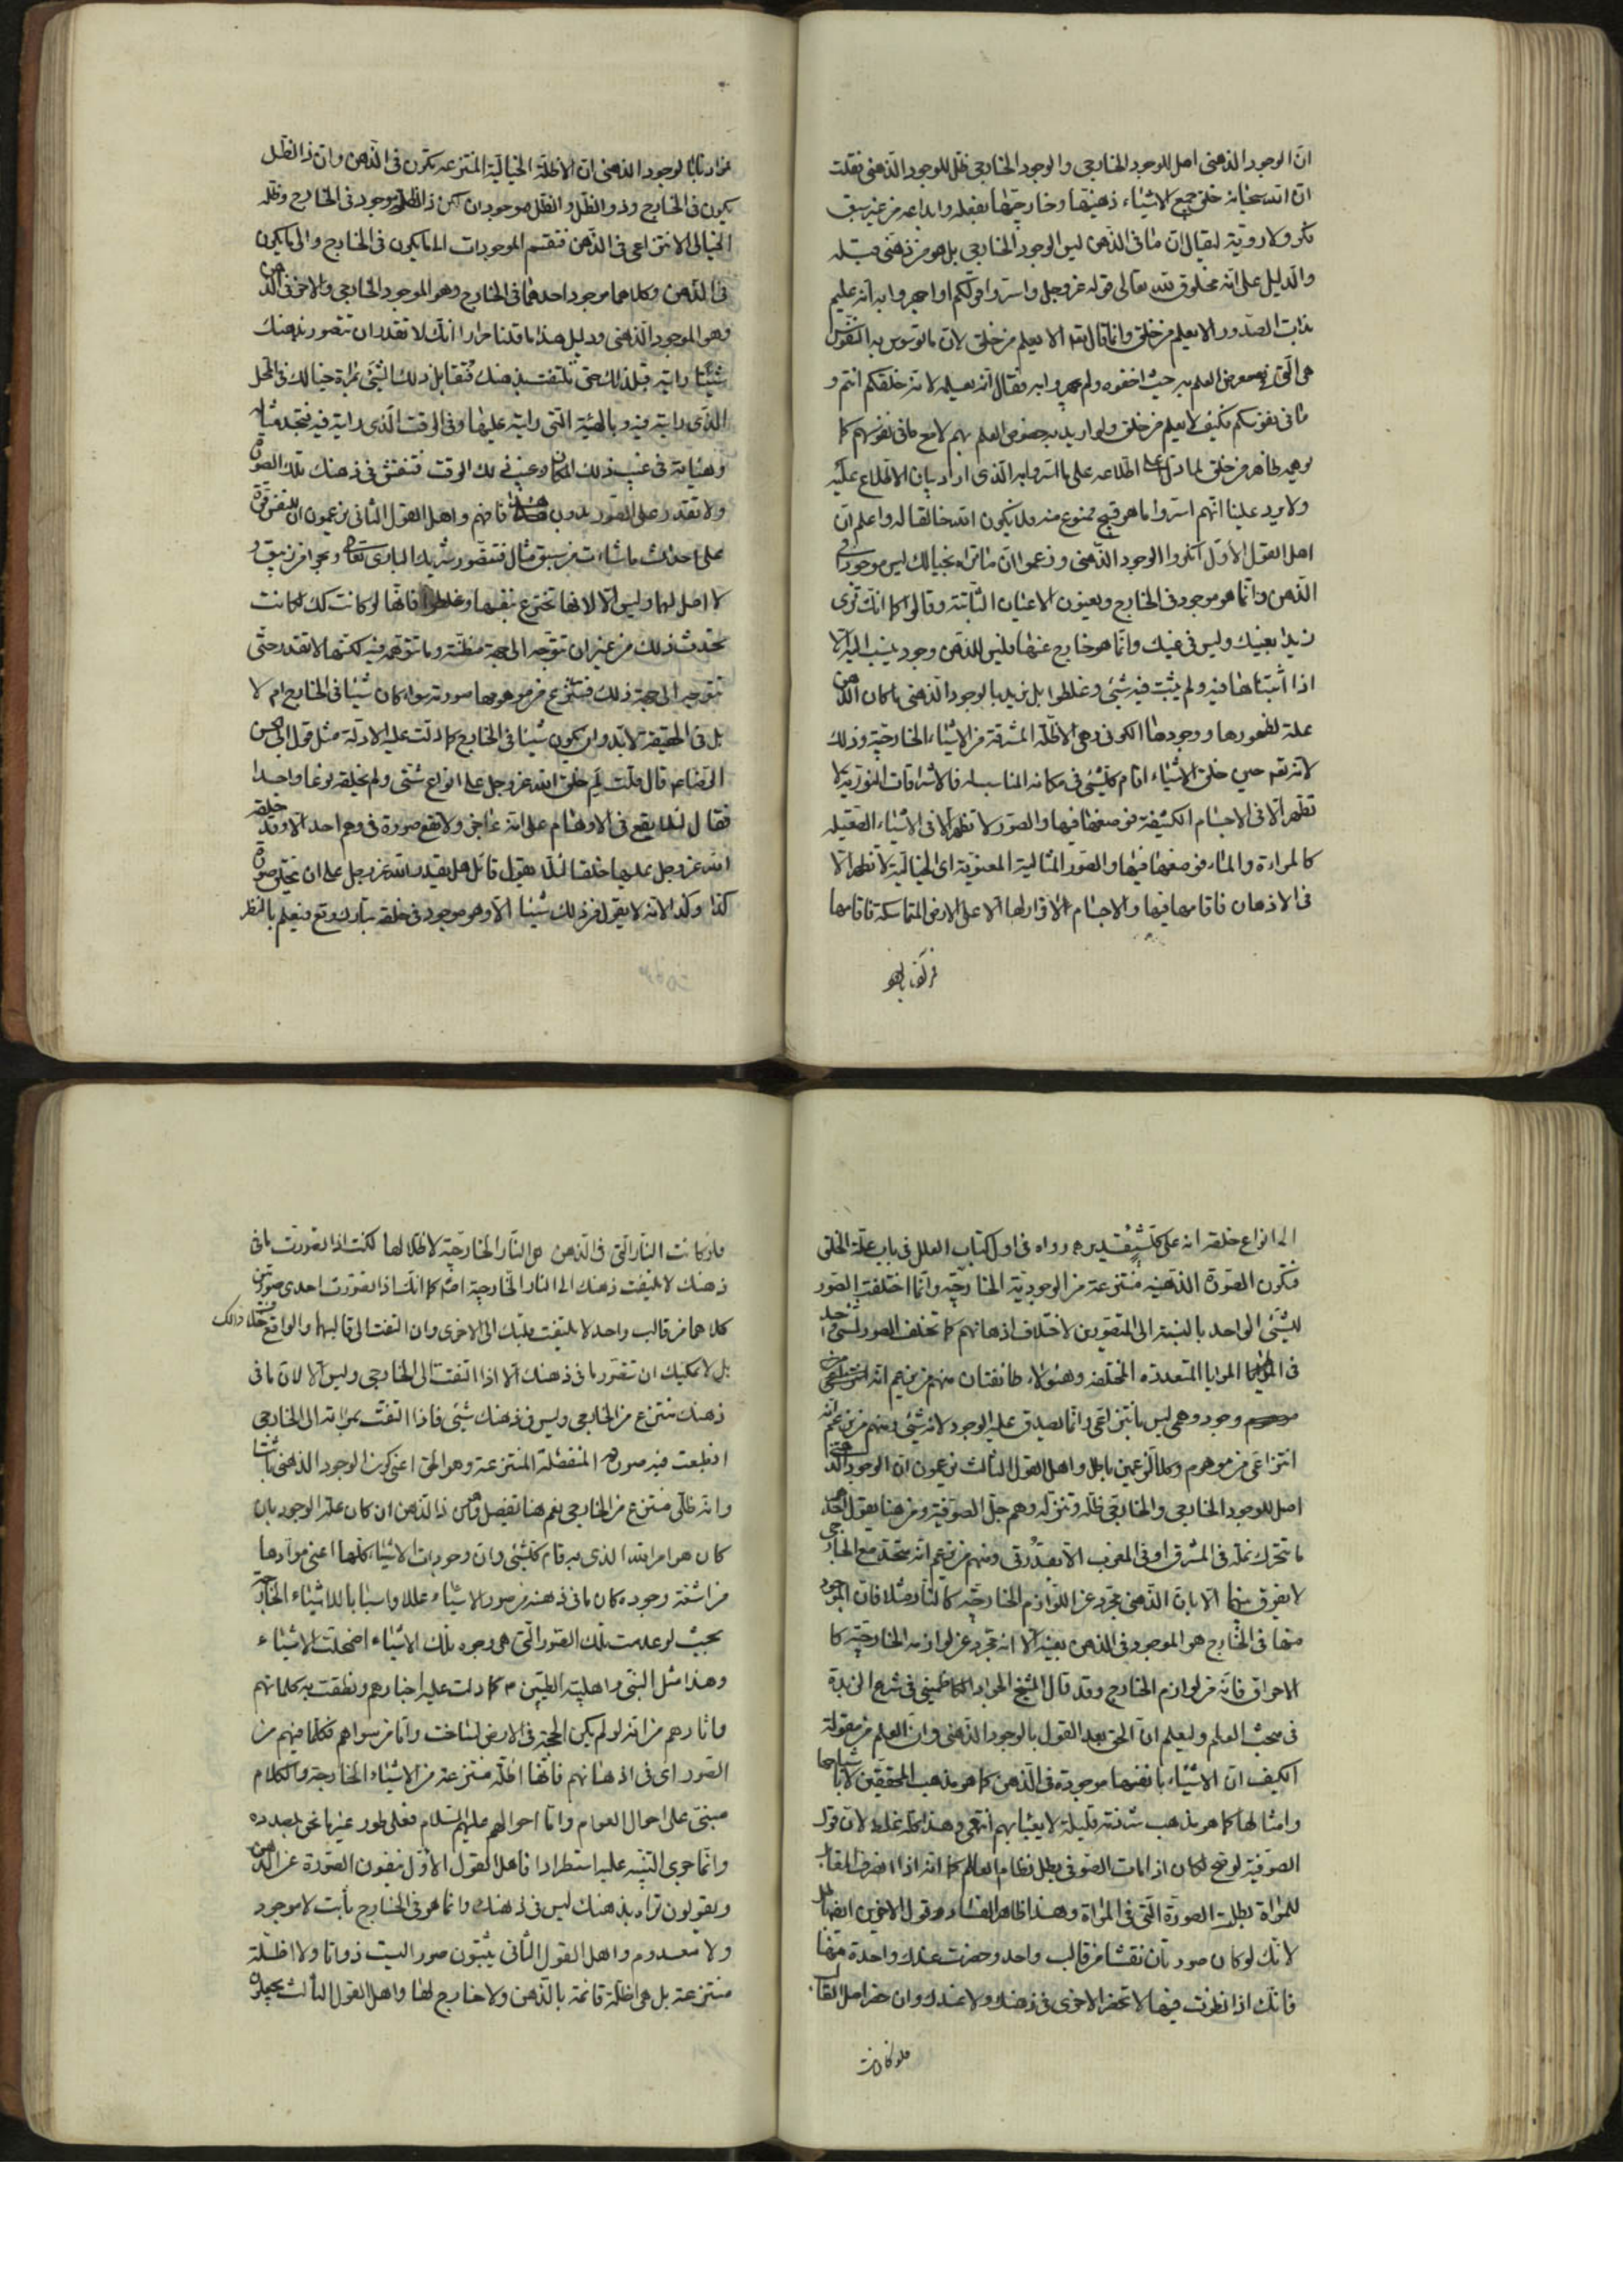 انّ الوجود الذهنى اصل للوجود الخارجى والوجود الخارجى ظل للوجود الذهنى فقلت
انّ الله سبحانه خلق جميع الاشياء ذهنيّها وخارجيّها بفعله وابداعه من غير سبق
فكر ولا رويّة ليقال انّ ما فى الذهن ليس الوجود الخارجى بل هو من ذهنى قبله
والدليل على انّه مخلوق لله تعالى قوله عز وجل واسروا قولكم او اجهروا به انّه عليم
بذات الصدور الا يعلم من خلق وانما قال تع الا يعلم من خلق لان ما توسوس به النفوس
هى الّتى العلم به حيث اخفوه ولم يجهروا به فقال انه يعلمه لانه خلقكم انتم و
ما فى نفوسكم فكيف لا يعلم من خلق ولو اريد به خصوص العلم بهم لا مع ما فى نفوسهم كما
يوهمه ظاهر من خلق لما دل على اطلاعه على ما اسروا به الّذى اراد بيان الاطلاع عليه
ولا يرد علينا انّهم اسروا ما هو قبيح ممنوع منه فلا يكون الله خالقا له واعلم انّ
اهل القول الأوّل انكروا الوجود الذهنى وزعموا انّ ما تراه بخيالك ليس موجودا فى
الذهن وانّما هو موجود فى الخارج ويعنون الاعيان الثابتة وقالوا كما انّك ترى
زيدا بعينك وليس فى عينك وانّما هو خارج عنها فليس للذهن وجود ينسب اليه الا
اذا اثبتناها فيه ولم يثبت فيه شئ وغلطوا بل نريد بالوجود الذهنى ما كان الذهن
علة لظهورها ووجودها الكونى وهى الاظلّة المشرقة من الاشياء الخارجيّة وذلك
لانه تع حين خلق الاشياء اقام كل شئ فى مكانه المناسب له فالاشراقات النوريّة لا
تظهر الّا فى الاجسام الكثيفة فوضعها فيها والصّور لا تظهر الا فى الاشياء الصقيله
كالمراة والماء فوضعها فيها والصور المثالية المعنويّة اى الخياليّة لا تظهر الّا
فى الاذهان فاقامها فيها والاجسام لا قرار لها الا على الارض المتماسكة فاقامها
مرادنا بالوجود الذهنى ان الاظلّة الخياليّة المنتزعه تكون فى الذهن وان ذا الظل
يكون فى الخارج وذو الظل والظل موجودان لكن ذا الظل موجود فى الخارج وظله
الخيالى الانتزاعى فى الذهن فتقسم الموجودات الى ما يكون فى الخارج والى ما يكون
فى الذهن وكلاهما موجود احدهما فى الخارج وهو الموجود الخارجى والاخر فى الذهن
وهو الموجود الذهنى ودليل هذا ما قلنا مرارا انك لا تقدر ان تتصور بذهنك
شيئا رايته قبل ذلك حتى تلتفت بذهنك فتقابل ذلك الشئ بمراة خيالك فى المحل
الذى رايته فيه وبالهيئة الّتى رايته عليها وفى الوقت الّذى رايته فيه فتجد مثاله
وهيئاته فى غيب ذلك المكان وغيب ذلك الوقت فتنتقش فى ذهنك تلك الصورة
ولا تقدر على التصور بدون هذا فافهم واهل القول الثانى يزعمون ان للنفس قوة
على احداث ما شاءت من غير سبق مثال فتتصور شريك البارى تعالى وبحرا من زيبق و
لا اصل لهما وليس الا لانها تخترع بنفسها وغلطوا فانها لو كانت كك لكانت
تحدث ذلك من غير ان تتوجه الى جهة مظنّته وما تتوهمه فيه لكنها لا تقدر حتّى
تتوجه الى جهة ذلك فتنتزع من موهومها صورته سواء كان شيئا فى الخارج ام لا
بل فى الحقيقة لا بد وان يكون شيئا فى الخارج كما دلت عليه الادلة مثل قول ابى الحسن
الرضا ع قال قلت لم خلق الله عز وجل على انواع شتّى ولم يخلقه نوعا واحدا
فقال لئلا يقع فى الاوهام على انه عاجز ولا تقع صورة فى وهم احد الا وقد خلق
الله عز وجل عليها خلقا لئلّا يقول قائل هل يقدر الله عز وجل على ان يخلق صورة
كذا وكذا لانه لا يقول من ذلك شيئا الّا وهو موجود فى خلقه تبارك وتع فيعلم بالنظر
الى انواع خلقه انه على كل شئ قدير رواه فى اول كتاب العلل فى باب علّة الخلق
فتكون الصورة الذهنيه منتزعة من الوجودية الخارجيّه وانما اختلفت الصور
للشئ الواحد بالنسبة الى المتصورين لاختلاف اذهانهم كما تختلف الصور لشئ واحد
فى المرايا المتعددة المختلفه وهؤلاء طائفتان منهم من يزعم انه
وجود وهمى ليس بانتزاعى وانّما يصدق عليه الوجود لانه شئ ومنهم من يزعم انه
انتزاعى من موهوم وكلا الزعمين باطل واهل القول الثالث يزعمون ان الوجود الذهنى
اصل للوجود الخارجى والخارجى ظلّه وتنزّله وهم جلّ الصوفية ومن هنا يقول احدهم
ما تتحرك نملة فى المشرق او فى المغرب الا بقدرتى ومنهم من يزعم انه متحد مع الخارجى
لا يفرق بينهما الا بان الذهنى مجرد عن اللوازم الخارجيّه كالنار مثلا فان الموجود
منها فى الخارج هو الموجود فى الذهن بعينه الا انه مجرد عن لوازمه الخارجيّه كا
الاحراق فانّه من لوازم الخارج وقد قال الشيخ الجواد الكاظمينى فى شرح الزبدة
فى مبحث العلم وليعلم انّ الحق بعد القول بالوجود الذهنى وان العلم من مقولة
الكيف انّ الاشياء بانفسها موجودة فى الذهن كما هو مذهب المحققين لا باشباحها
وامثالها كما هو مذهب شرذمة قليلة لا يعبأ بهم انتهى وهذا كله غلط لان قول
الصوفية لو صح لكان اذا مات الصوفى بطل نظام العالم كما انه اذا انصرف المقابل
للمراة بطلت الصورة التى فى المراة وهذا ظاهر الفساد وقول الاخرين ايضا باطل
لانّك لو كان صورتان نقشا من قالب واحد وحضرت عندك واحدة منها
فانّك اذا نظرت فيها لا تحضر الاخرى فى ذهنك ولا عندك وان حضر اصل القالب
فلو كانت
فلو كانت النار الّتى فى الذهن هى النار الخارجيّة لا ظلا لها لكنت اذا تصورت ما فى
ذهنك لا يلتفت ذهنك الى النار الخارجيّة اصلا كما انّك اذا تصورت احدى صورتين
كلاهما من قالب واحد لا يلتفت قلبك الى الاخرى وان التفت الى قالبهما والواقع خلاف ذلك
بل لا يمكنك ان تتصور ما فى ذهنك الا اذا التفت الى الخارجى وليس الا لان ما فى
ذهنك منتزع من الخارجى وليس فى ذهنك شئ فاذا التفت بمراته الى الخارجى
انطبعت فيه صورته المنفصلة المنتزعة وهو الحق اعنى كون الوجود الذهنى ثابتا
وانه ظلّى منتزع من الخارجى نعم هنا تفصيل وهو ان ذا الذهن ان كان علّة الوجود بان
كان هو امر الله الذى به قام كل شئ وان وجودات الاشياء كلّها اعنى موادها
من اشعة وجوده كان ما فى ذهنه من صور الاشياء عللا واسبابا للاشياء الخارجيّة
بحيث لو عدمت تلك الصور الّتى هى وجوه تلك الاشياء اضمحلت الاشياء
وهذا مثل النبى واهل بيته الطيبين ص كما دلت عليه اخبارهم ونطقت به كلماتهم
واثارهم من انه لو لم يكن الحجة فى الارض لساخت وامّا من سواهم فكلّما فيهم من
الصور اى فى اذهانهم فانّها اظلّة منتزعة من الاشياء الخارجة والكلام
مبنى على احوال العوام وامّا احوالهم عليهم السلام فعلى طور غير ما نحن بصدده
وانّما جرى التنبيه عليه استطرادا فاهل القول الأوّل ينفون الصورة عن الذهن
ويقولون تراه بذهنك ليس فى ذهنك وانما هو فى الخارج ثابت لا موجود
ولا معدوم واهل القول الثانى يثبتون صورا ليست ذواتا ولا اظلّة
منتزعة بل هى اظلّة قائمة بالذهن ولا خارج لها واهل القول الثالث يجعلون